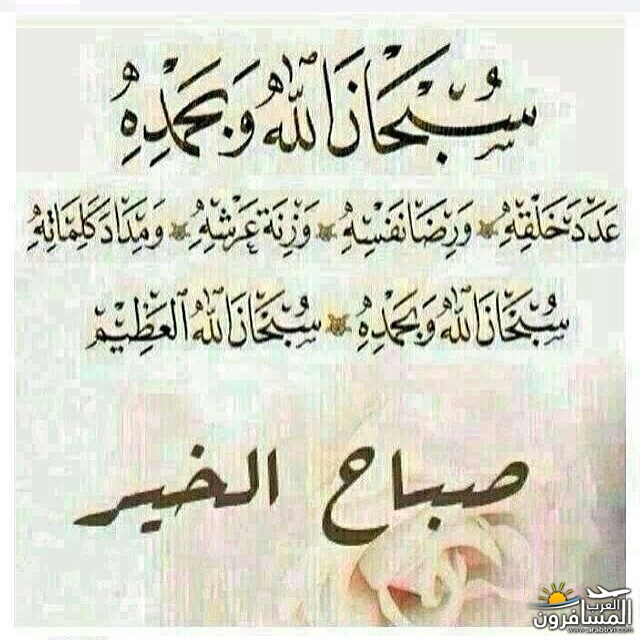 سُبْحَانَ اللهِ وَبِحَمْدِهِ
عَدَدَ خَلْقِهِ وَرِضَا نَفْسِهِ وَزِنَةَ عَرْشِهِ وَمِدَادَ كَلِمَاتِهِ
سُبْحَانَ اللهِ وَبِحَمْدِهِ سُبْحَانَ اللهِ الْعَظِيْمِ
صباح الخير
العرب
المسافرون
www.arabtrvl.com